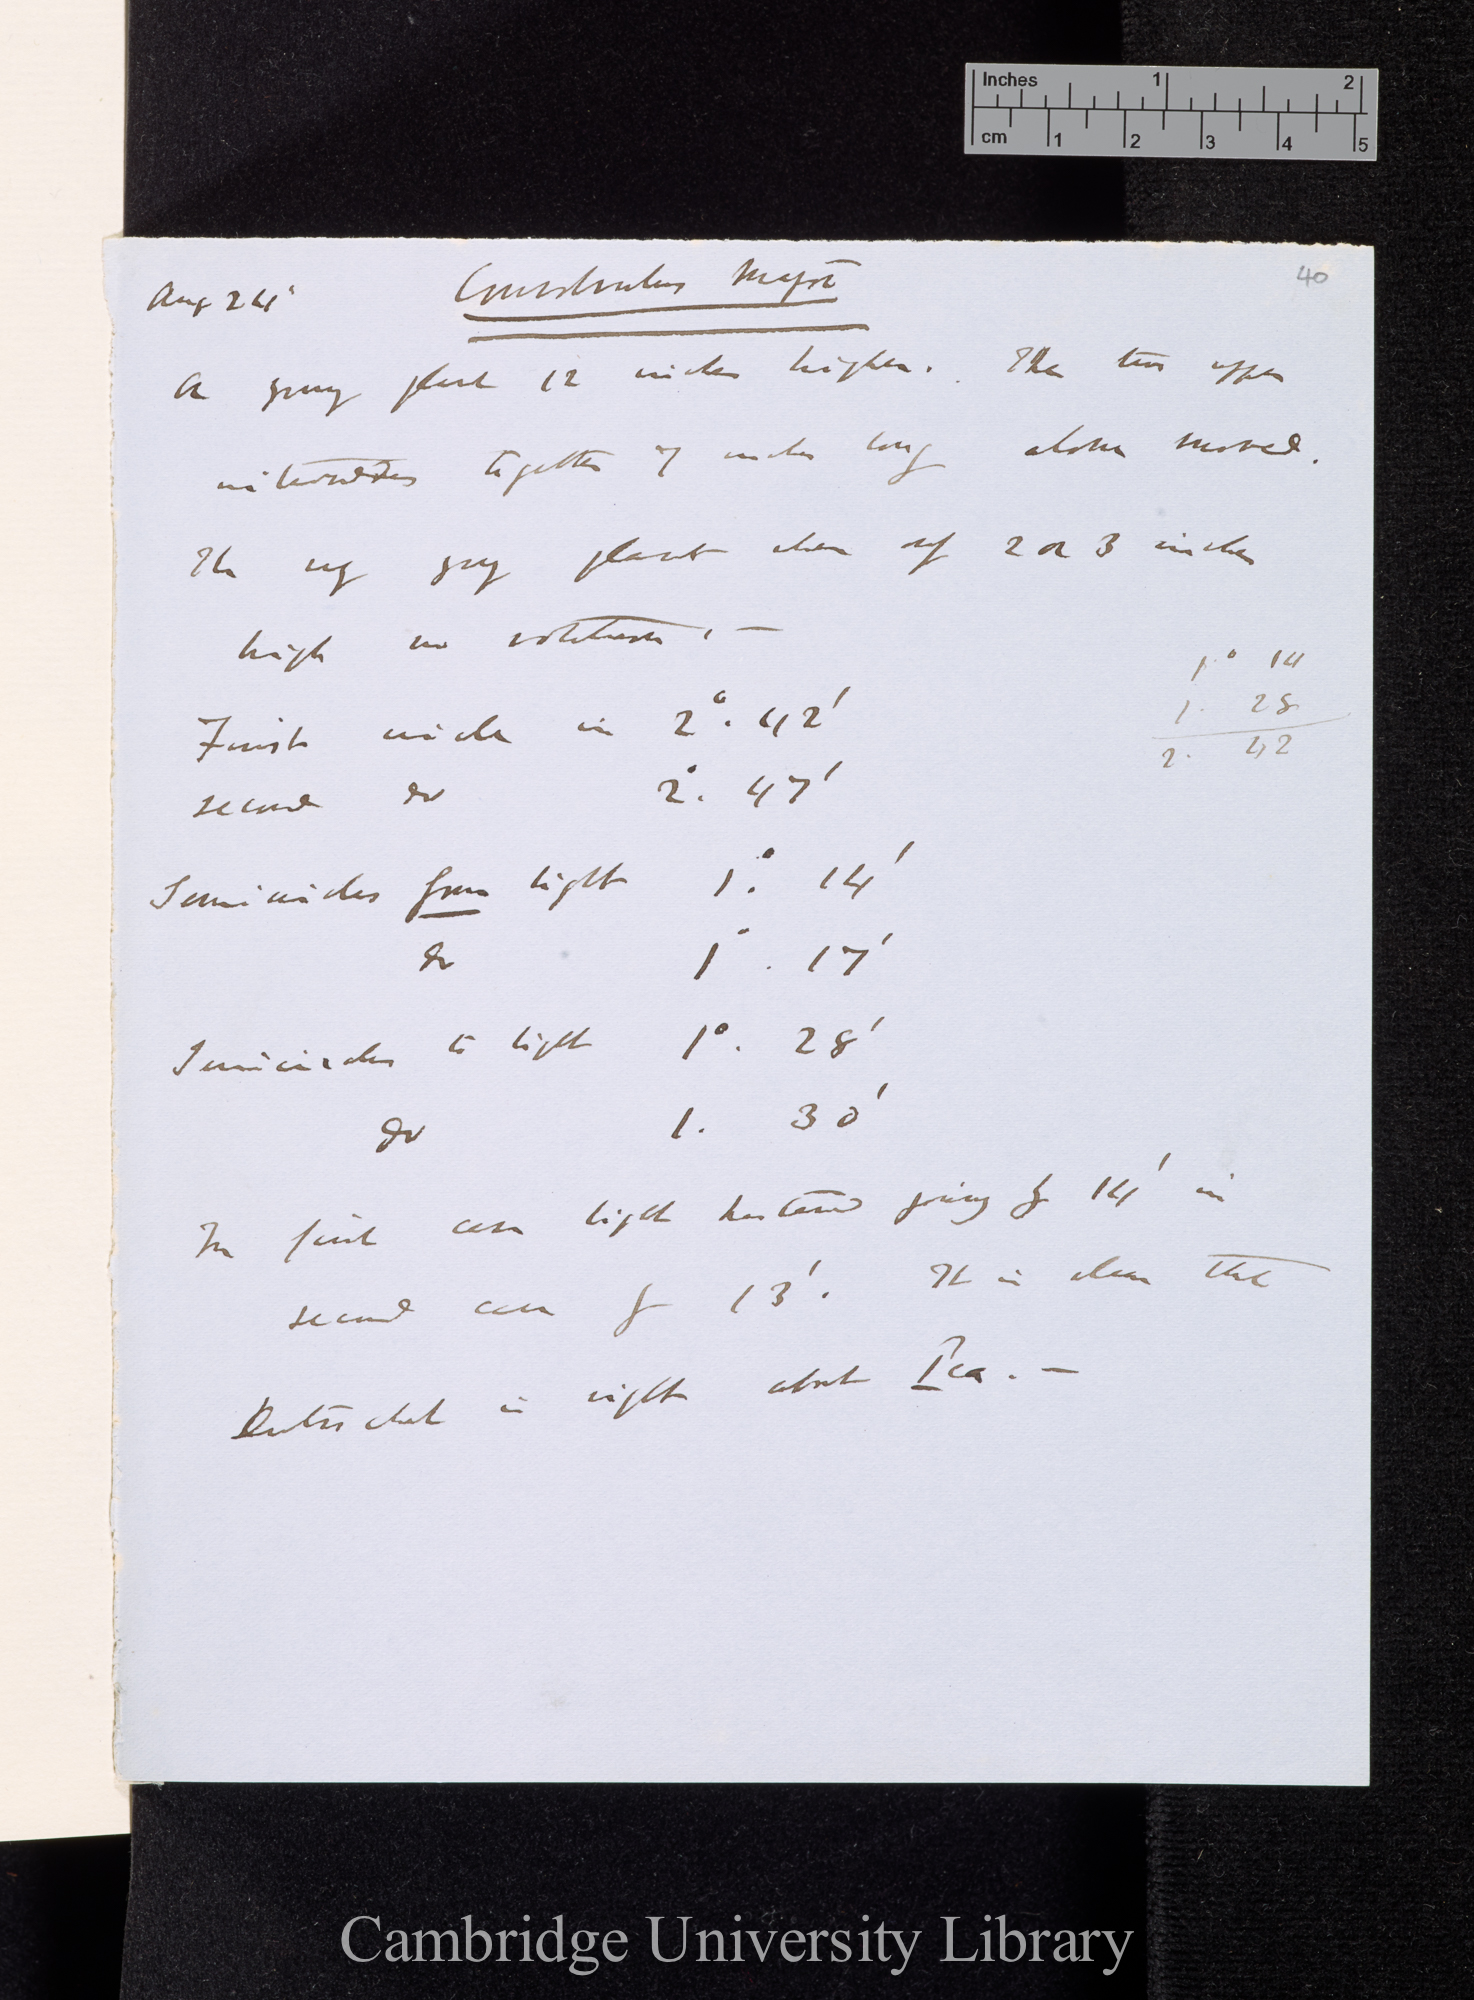 Inches 1 2
cm 1 2 3 4 5
40
Aug 24' Convolvulus Major
A young plant 12 inches high. The two upper
internodes together 7 inches long alone moved.
The very young plant when only 2 or 3 inches
high no rotation. —
1° 14
1. 28
2. 42
First circle in 2°. 42'
second do 2°. 47'
Semicircles from light 1°. 14'
do 1°. 17'
Semicircles to light 1°. 28'
do 1. 30'
In first case light hastened going by 14' in
second case by 13'. It is clear that
Dutrochet is right about Pea. —
Cambridge University Library